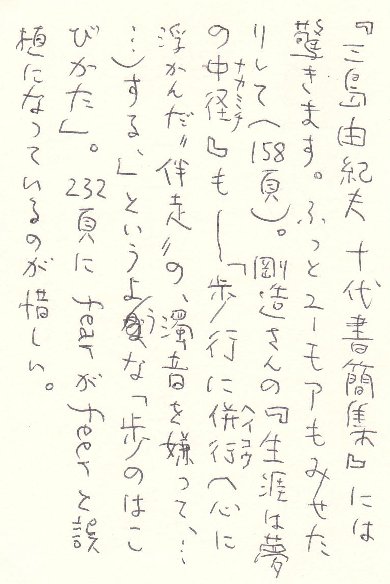 『三島由紀夫 十代書簡集』には
驚きます。ふっとユーモアもみせた
りして(158頁)。剛造さんの『生涯は夢
ナカミチ ヘイコウ
の中径』も―「歩行に併行(心に
浮かんだ〝伴走〟の、濁音を嫌って、…
…)する、」というような「歩のはこ
びかた」。232頁にfearがfeerと誤
植になっているのが惜しい。